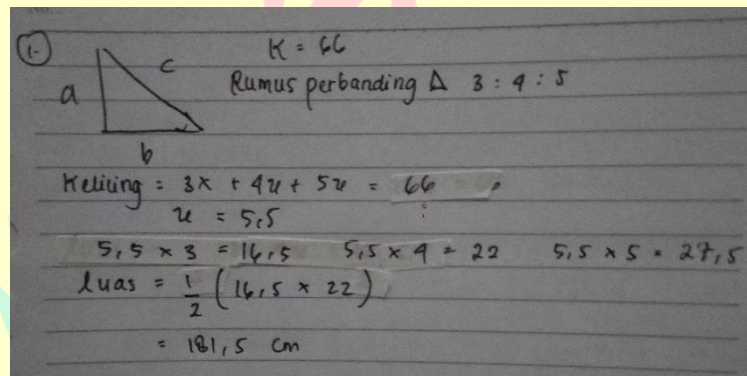 1.
K = 66
a c Rumus perbanding Δ 3 : 4 : 5
b
Keliling = 3x + 4x + 5x = 66
x = 5,5
5,5 x 3 = 16,5 5,5 x 4 = 22 5,5 x 5 = 27,5
luas = 1/2 (16,5 x 22)
= 181,5 cm